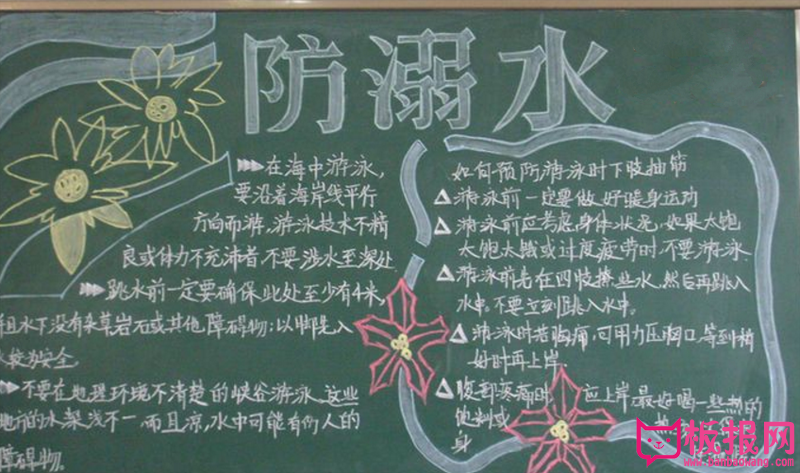 防溺水
在海中游泳,
要沿着海岸线平行
方向而游,游泳技术不精
良或体力不充沛者,不要涉水至深处.
跳水前一定要确保此处至少有4米,
且水下没有杂草岩石或其他障碍物:以脚先入
水较为安全.
不要在地理环境不清楚的峡谷游泳.这些
地方的水深浅不一,而且凉,水中可能有伤人的
障碍物。
如何预防游泳时下肢抽筋
游泳前一定要做好暖身运动
游泳前应考虑身体状况,如果太饱
太饱太饿或过度疲劳时,不要游泳.
游泳前先在四肢擦些水,然后再跳入
水中.不要立刻跳入水中。
游泳时若胸痛,可用力压胸口,等到稍
好时再上岸.
腹部疼痛时 应上岸,最好喝一些热的
饮料或
身
板报网
www.banbaowang.com